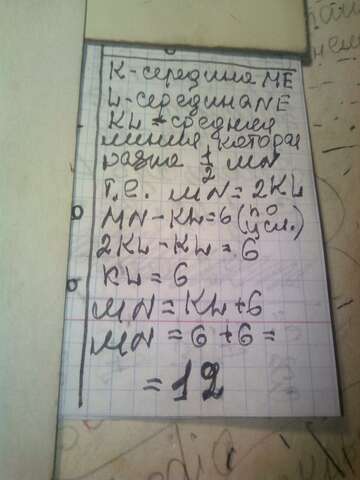 K-середина ME
L-середина NE
KL - средняя
линия которая
равна 1/2 MN
т.е. MN=2KL
MN-KL=6 (по усл.)
2KL-KL=6
KL=6
MN=KL+6
MN=6+6=
=12